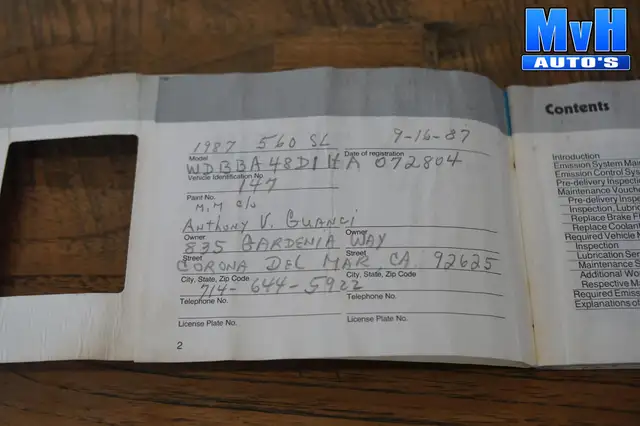 MvH
AUTO'S
1987 560 SL 9-16-87
Model Date of registration
WDBBA48D1HA 072804
Vehicle Identification No.
147
Paint No.
M.M c/o
Anthony V. Guanci
Owner Owner
835 GARDENIA WAY
Street Street
CORONA DEL MAR, CA. 92625
City, State, Zip Code City, State, Zip Code
714-644-5922
Telephone No. Telephone No.
License Plate No. License Plate No.
2
Contents
Introduction
Emission System Mai
Emission Control Sys
Pre-delivery Inspecti
Maintenance Vouche
Pre-delivery Inspe
Inspection, Lubri
Replace Brake F
Replace Coolant
Required Vehicle M
Inspection
Lubrication Serv
Maintenance S
Additional Wo
Respective Ma
Required Emiss
Explanations of